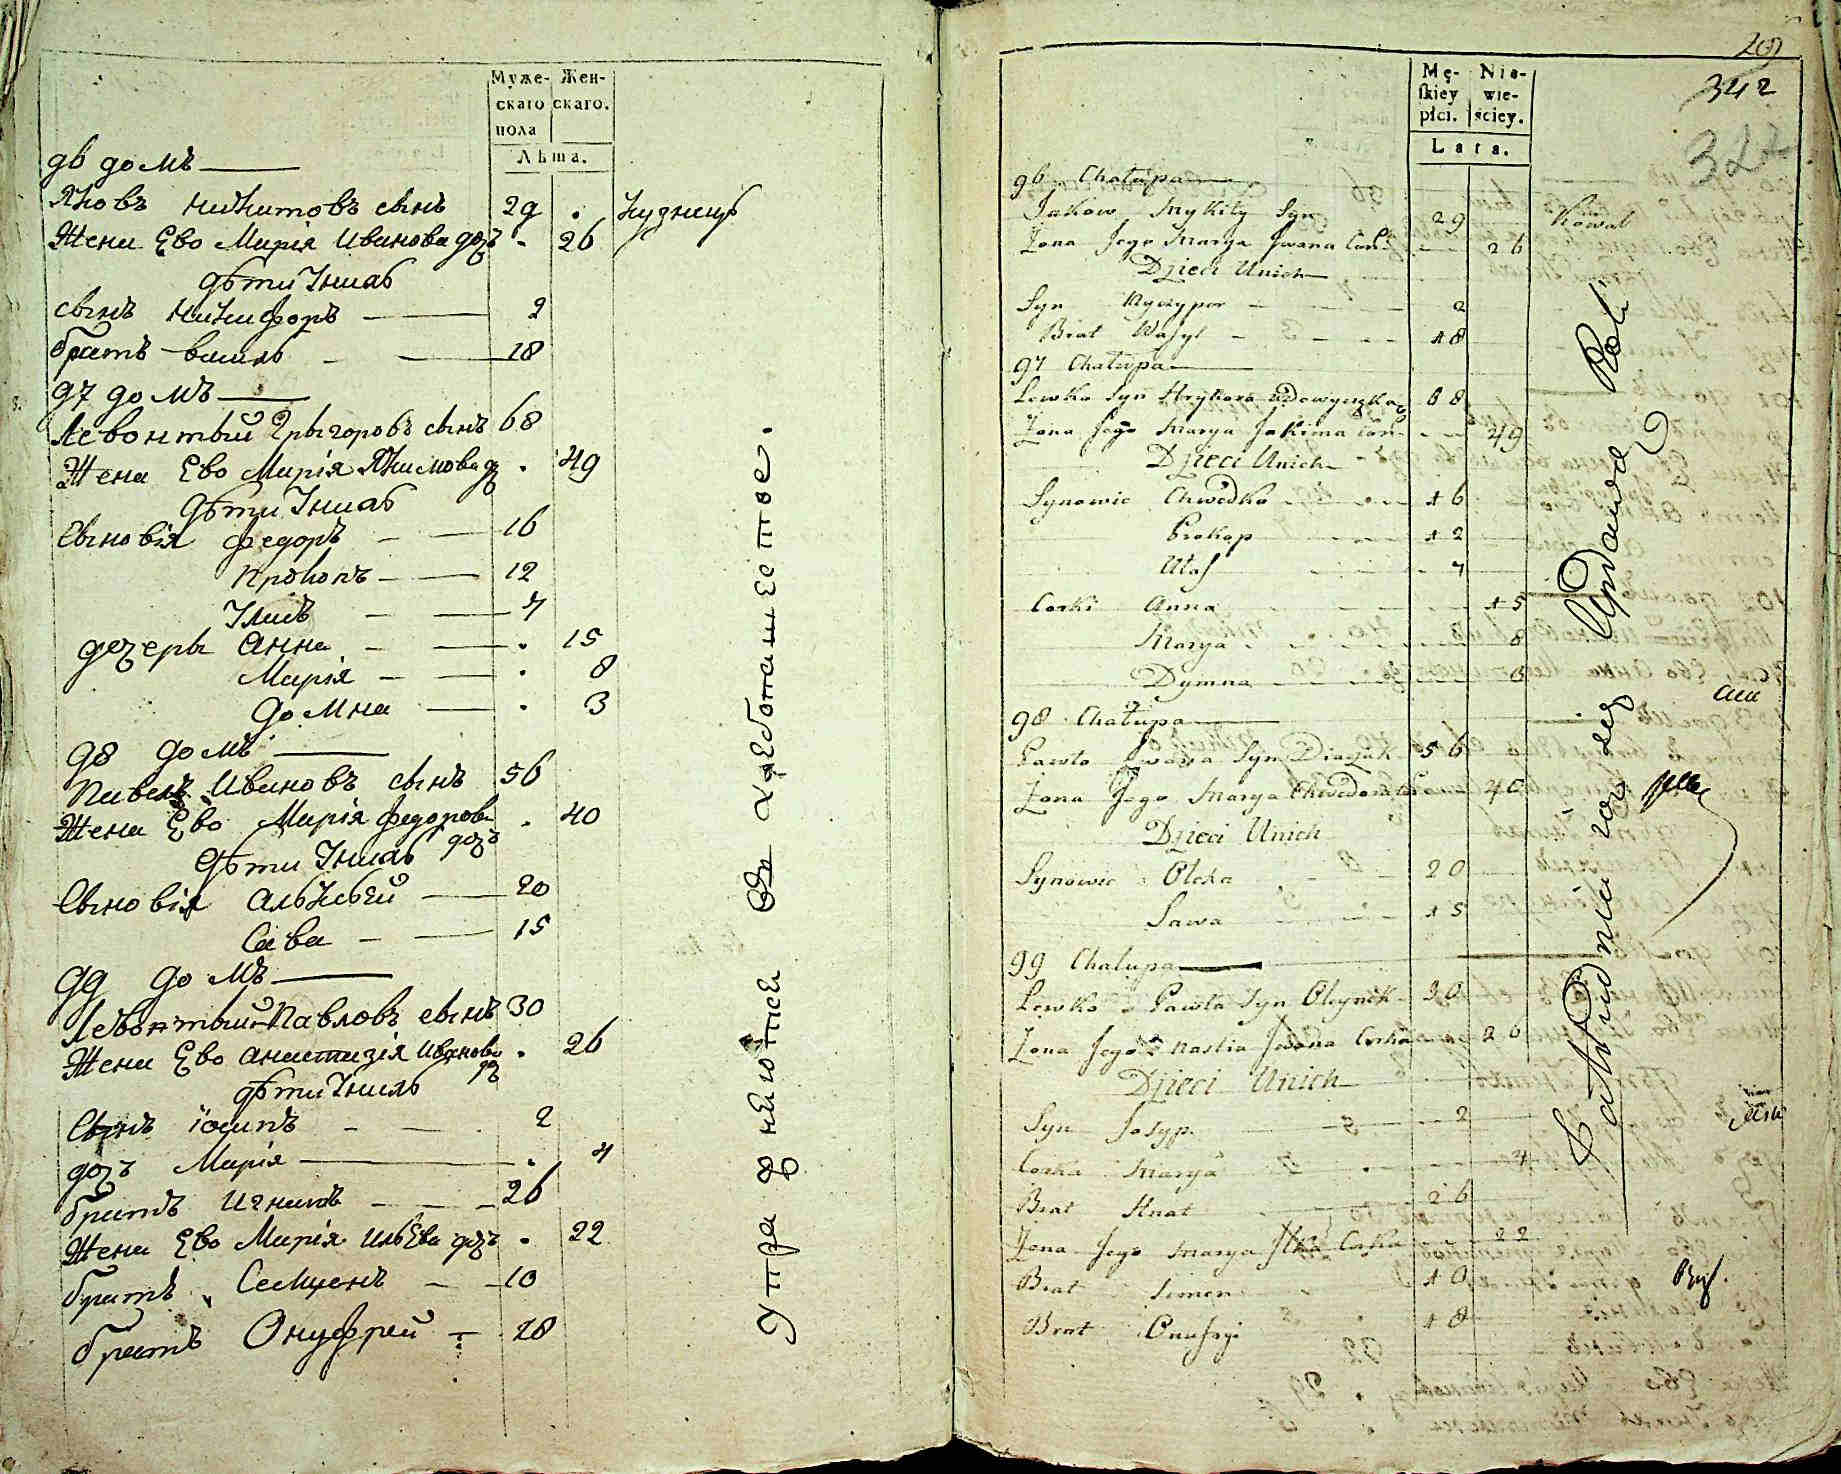 Муже- Жен-
скаго скаго.
пола
Лѣта.
96 домъ
Яковъ Никитовъ сынъ 29 . Кузнецъ
Жена Ево Марія Иванова дочъ - 26
Дѣти Ўнихъ
сынъ Никифоръ 2
братъ василь 18
97 домъ
Левонтый Грыгоровъ сынъ 68
Жена Ево Марія Якимова дч . 49
Дѣти Ўнихъ
Сыновія Федоръ 16
Прокопъ 12
Улисъ 7
дочеры Анна . 15
Марія . 8
Домна . 3
98 домъ
Павелъ Ивановъ сынъ 56
Жена Ево Марія Федорова дочъ . 40
Дѣти Ўнихъ
Сыновія Алексѣй 20
Сава 15
99 домъ
Левонтый Павловъ сынъ 30
Жена Ево Анастазія Иванова дч . 26
Дѣти Ўнихъ
Сынъ Іосипъ 2
дочъ Марія . 4
братъ Игнатъ 26
Жена Ево Марія Ильева дочъ . 22
братъ Семценъ 10
братъ Онуфрей 18
Упражняются въ хлебопашестве.
209
342
327
Mę- Nie-
skiey wie-
płci. ściey.
Lata.
96 Chałupa
Jakow Mykity Syn 29 Kowal
Zona Jego Marya Jwana Cor: 26
Dzieci Unich
Syn Nyczypor 2
Brat Wasyl 18
97 Chałupa
Lewko Syn Hryhora 68
Zona Jego Marya Jakima Cor: 49
Dzieci Unich
Synowie Chwedko 16
Prokop 12
Ułas 7
Corki Anna 15
Marya 8
Dymna 3
98 Chałupa
Pawło Jwana Syn 56
Zona Jego Marya Chwedora Cor 40
Dzieci Unich
Synowie Olexa 20
Sawa 15
99 Chałupa
Lewko Pawła Syn Oleynik 30
Zona Jego Nastia Jwana Corka 26
Dzieci Unich
Syn Josyp 2
Corka Marya 4
Brat Hnat 26
Zona Jego Marya Jlka Corka 22
Brat Semen 10
Brat Onufryi 18
Zatrudniaią się Uprawą Roli